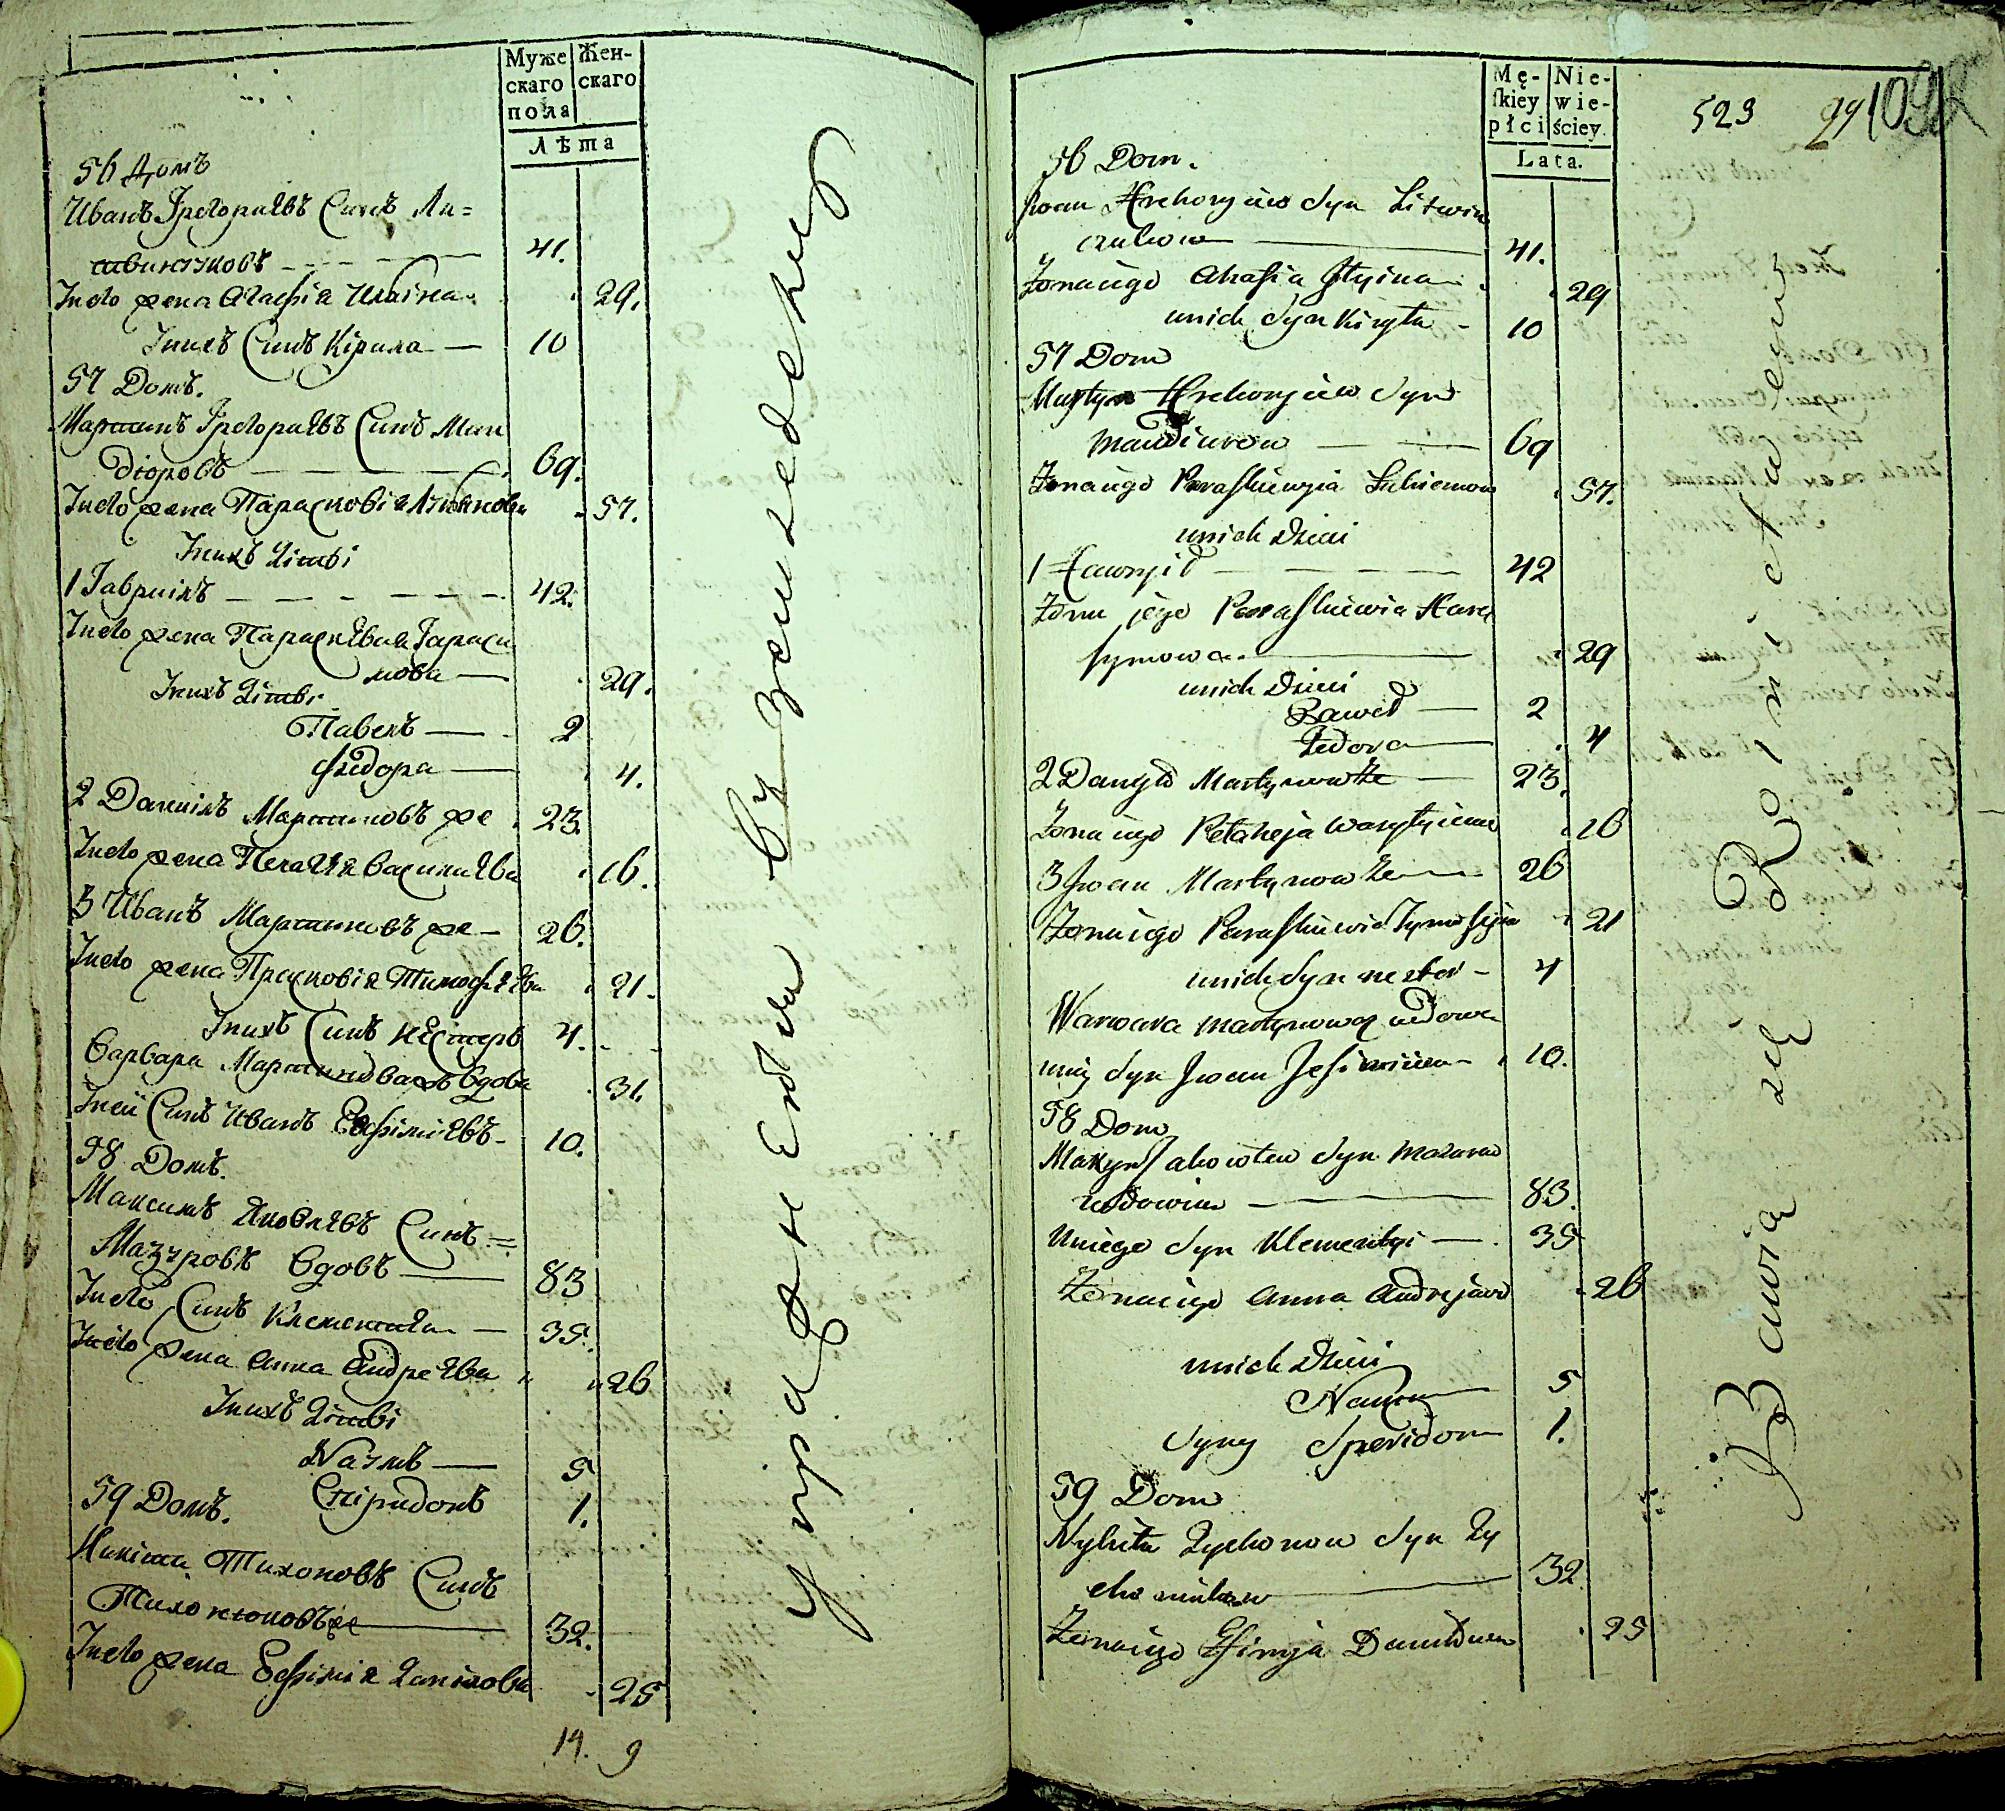 Муже
скаго
пола
Жен-
скаго
Лѣта
56 Домъ
Иванъ Григориевъ Синъ Ли=
твинчуковъ
Унего жена Агафіа Иліина
Унихъ Синъ Кірила
41.
29.
10
57 Домъ.
Мартинъ Григориевъ Синъ Ман
діоровъ
69.
Унего жена Парасковіа
57.
Унихъ Діти
1 Гавриілъ
42.
Унего жена Параскевиа Гараси
мова
29.
Унихъ Діти
Павелъ
2
Федора
4.
2 Даниілъ Мартиновъ же
23.
Унего жена Пелагія Василиева
16.
3 Иванъ Мартиновъ же
26.
Унего жена Прасковіа Тимофеева
21.
Унихъ Синъ Нестеръ
4.
Варвара Мартиновахъ Вдова
31.
Унеи Синъ Иванъ Евфіміевъ
10.
58 Домъ.
Максимъ Яковлевъ Синъ =
Мазуровъ Вдовъ
83
Унего Синъ Клементий
35.
Унего жена Анна Андреева
26
Унихъ Діти
Наумъ
5
Спіридонъ
1.
59 Домъ.
Никіта Тихоновъ Синъ
Тихонюковъ же
32.
Унего жена Евфіміа Данілова
25
14. 9
упражненъ въ земледелие
Mę-
ſkiey
płci
Nie-
wie-
ściey.
Lata.
523
56 Dom.
Jwan Hrehoryiew Syn Litwin
czukow
41.
Zona iego Ahafia Jlyina
29
unich Syn Kiryła
10
57 Dom
Martyn Hrehoryiew Syn
Mandiurow
69
Zona iego Paraskiewyia
57.
unich Dzieci
1 Hawryił
42
Zona jego Paraskiewia Hara
symowa
29
unich Dzieci
Paweł
2
Fedora
4
2 Danyło Martynow że
23.
Zona iego Pełaheja Wasylyiewa
16
3 Jwan Martynow że
26
Zona iego Paraskiewia Tymofyia
21
unich Syn Nestor
4
Warwara Martynowa wdowa
unij Syn Jwan Jefimiiew
10.
58 Dom
Maxym Jakowlew Syn Mazurow
wdowiec
83.
Uniego Syn Klementyi
35
Zona iego Anna Andryiew
26
unich Dzieci
Naum
5
Syny Spirydon
1.
59 Dom
Nykita Tychonow Syn Ty
choniukow
32
Zona iego Efimja Daniłowa
25
Bawią się Rolnictwem